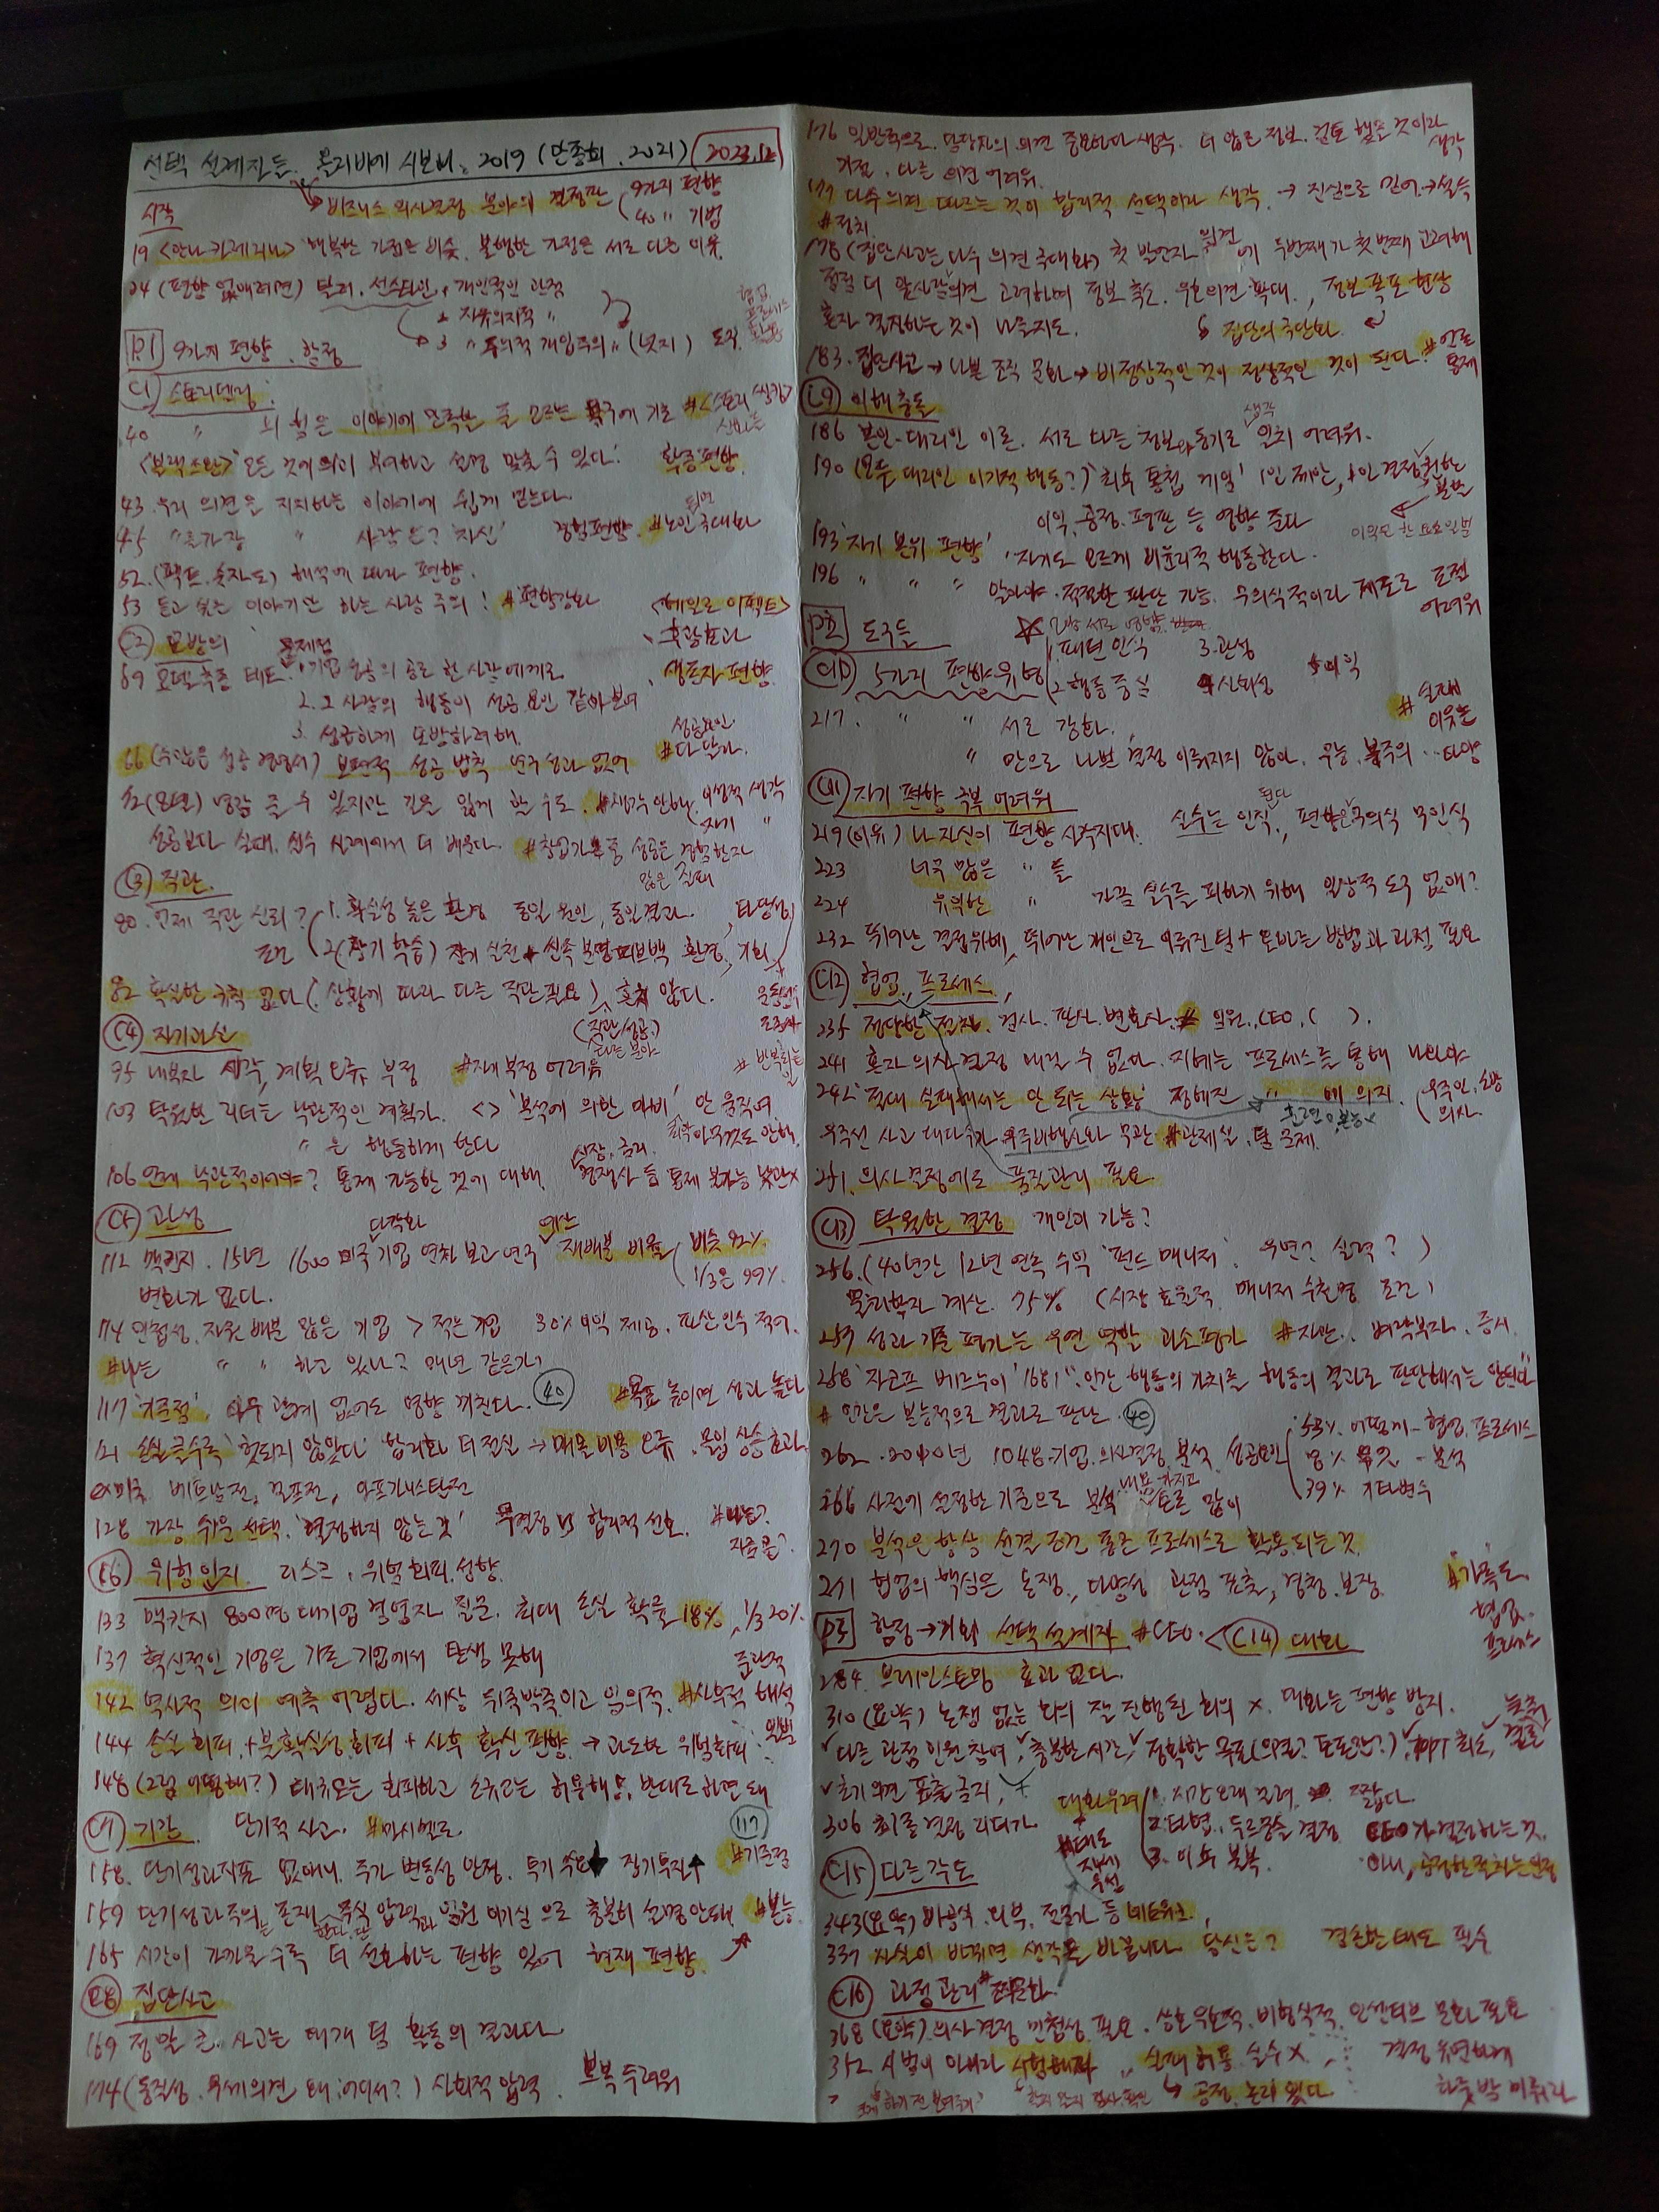 선택 설계자들. 올리비에 시보니. 2019 (안종희. 2021) 2023.12
→ 비즈니스 의사결정 분야의 결정판 (9가지 편향
40 〃 기법
시작
19 <안나 카레리나> 행복한 가정은 비슷, 불행한 가정은 서로 다른 이유.
24 (편향 없애려면) 탈러. 선스타인. 1 개인주의 관점
2 자유의지적 〃
3 〃 주의적 개입주의 〃 (넛지) 도구
협업
프로세스
P1 9가지 편향. 함정
C1 스토리텔링.
40 〃 의 힘은 이야기에 만족할 줄 모르는 욕구에 기초 #<스토리
<블랙스완> 모든 것에 의미 부여하고 설명 맞출 수 있다. 확증편향
43. 우리 의견을 지지하는 이야기에 쉽게 믿는다.
45 〃 을 가장 〃 사람은? '자신' 경험편향. #노인 극대화
52. (팩트. 숫자도) 해석에 따라 편향.
53 듣고 싶은 이야기만 하는 사람 주의! #편향강화
<헤일로 이펙트>
C2 모방의 문제점
· 후광효과
69 모델 추종 태도. 1. 기업 성공의 공로 한 사람에게로
· 생존자 편향.
2. 그 사람의 행동이 성공 요인 같아 보여
3. 성급하게 모방하려 해.
성공요인.
#다 달라.
66 (수많은 성공 경영서) 보편적 성공 법칙 연구 성과 없어
72 (모델) 영감 줄 수 있지만 길을 잃게 할 수도. #생각 안해. 이성적 생각
자기 〃
성공보다 실패, 실수 사례에서 더 배운다. #창업가 보통 성공은 경험한자
많은 실패
C3 직관.
80. 언제 직관 신뢰? 1. 확실성 높은 환경 동일 원인, 동일 결과. 타당성
조건 2 (장기 학습) 장기 실천 + 신속 분명 피드백 환경, 기회
82 확실한 규칙 없다 (상황에 따라 다른 직관 필요). 흔치 않다.
(직관 성공.)
다른 분야
C4 자기과신
95 내부자 시각, 계획 오류 부정 #자기 부정 어려움
# 반복하는
일
103 탁월한 리더는 낙관적인 계획가. <> '분석에 의한 마비' 안 움직여.
〃 은 행동하게 한다
106 언제 낙관적이어야? 통제 가능한 것에 대해.
시장, 금리.
경쟁사 등 통제 불가능 낙관x
C5 관성
다각화
예산
112 맥킨지. 15년 1600 미국 기업 연차 보고 연구 재배분 비율 (비슷 92%.
1/3은 99%.
변화가 없다.
114 민첩성. 자원 배분 많은 기업 > 적은 기업 30% 이익 제공. 파산 인수 적어.
#나는 〃 〃 하고 있나? 매년 같은가?
117 '기준점', 아무 관계 없어도 영향 끼친다. 40 #목표 높이면 성과 높다
121 손실 클수록 '헛되지 않았다' 합리화 더 절실 → 매몰비용 오류. 몰입 상승 효과.
ex미국. 베트남전, 걸프전, 아프가니스탄전
128 가장 쉬운 선택. '결정하지 않는 것' 무결정 vs 합리적 선호. #나는?
지금은?
C6 위험 인지. 리스크, 위험회피 성향.
133 맥킨지 800명 대기업 경영자 질문. 최대 손실 확률 18%, 1/3 20%.
137 혁신적인 기업은 기존 기업에서 탄생 못해
142 역사적 의미 예측 어렵다. 세상 뒤죽박죽이고 임의적. #사후적 해석
144 손실 회피 + 불확실성 회피 + 사후 확신 편향 → 과도한 위험회피
148 (그럼 어떻해?) 대규모는 회피하고 소규모는 허용해요. 반대로 하면 돼
C7 기간. 단기적 사고. #마시멜로.
117
#기준점
158. 단기성과지표 없애니, 주가 변동성 안정. 투기 수요↓ 장기투자↑
159 단기성과주의는 존재한다, 단 주식 압력과 임원 이기심으로 충분히 설명 안돼. #본능.
165 시간이 가까울수록 더 선호하는 편향 있어 현재 편향
C8 집단사고
169 정말 큰 사고는 대개 팀 활동의 결과다
174 (동질성. 우세 의견 왜 어디서?) 사회적 압력. 보복 두려워
176 일반적으로. 당장자의 의견 중요하다 생각. 더 많은 정보. 검토 했을 것이라
생각
거절. 다른 의견 어려워.
177 다수의견 따르는 것이 합리적 선택이라 생각. → 진심으로 믿어 → 설득
#정치.
178 (집단사고는 다수 의견 극대화) 첫 발언자 의견에 두번째가 첫번째 고려해
점점 더 앞사람 의견 고려하며 정보 축소. 우호의견 확대, 정보 폭포 현상
혼자 결정하는 것이 나을지도. 집단의 극단화.
183. 집단사고 → 나쁜 조직 문화 → 비정상적인 것이 정상적인 것이 된다. #언론
통제
C9 이해충돌
186 본인-대리인 이론. 서로 다른 정보와 동기로 생각 일치 어려워.
190 (모두 대리인 이기적 행동?) '최후통첩 게임' 1인 제안, 1인 결정권한
이익. 공정. 평판 등 영향 준다
193 '자기 본위 편향' 자기도 모르게 비윤리적 행동한다.
196 〃 〃 〃 알아야. 적절한 판단 가능. 무의식적이라 제도로 조절
어려워
P2 도구들
C10 5가지 편향 유형 1. 패턴 인식 3. 관성 5 이익
2 행동 중심 4 사회성
217. 〃 〃 서로 강화.
# 실패
이유는
〃 만으로 나쁜 결정 이뤄지지 않아. 무능. 부주의 … 다양
C11 자기 편향 극복 어려워
219 (이유) 나 자신이 편향 사각지대. 실수는 인식된다, 편향은 무의식 못인식
223 너무 많은 〃 들
224 유익한 〃 가끔 실수를 피하기 위해 일상적 도구 없애?
232 뛰어난 결정위해, 뛰어난 개인으로 이뤄진 팀 + 올바른 방법과 과정 필요
C12 협업, 프로세스.
235 정당한 절차. 검사. 판사. 변호사. # 임원., CEO, ( ).
241 혼자 의사결정 내릴 수 없다. 지혜는 프로세스를 통해 나와야
242 '절대 실패해서는 안 되는 상황' 정해진 〃 에 의지. (우주인, 소방
의사.
우주선 사고 대다수가 우주비행사와 무관 #관제실, 팀 문제.
251. 의사결정에도 품질관리 필요.
C13 탁월한 결정 개인이 가능?
256. (40년간 12년 연속 수익 '펀드 매니저'. 우연? 실력?)
물리학자 계산. 75% (시장 효율적. 매니저 수천명 조건)
257 성과 기준 평가는 우연 역할 과소평가 #자만.. 벼락부자. 증시.
258 '자코프 베르누이 '1681' "인간 행동의 가치를 행동의 결과로 판단해서는 안된다"
# 인간은 본능적으로 결과로 판단. 40
262. 2010년 1048 기업 의사결정 분석 성공요인 53% 어떻게 - 협업, 프로세스
8% 무엇 - 분석
39% 기타변수
266 사전에 설정한 기준으로 분석 내용 가지고 토론 많이
270 분석은 항상 선결 조건 좋은 프로세스로 활용되는 것.
271 협업의 핵심은 논쟁, 다양성 관점 표출, 경청. 보장.
#가족도.
협업.
프로세스
P3 함정 → 기회 선택 설계자 #CEO. < C14 대화
284. 브레인스토밍 효과 없다.
310 (요약) 논쟁 없는 회의 잘 진행된 회의 x. 대화는 편향 방지.
✓다른 관점 인원 참여, ✓충분한 시간, ✓정확한 목표 (의결? 토론만?), ✓ppt 최소,
✓초기 의견 표출 금지,
306 최종 결정 리더가
대화우려 1. 시간 오래 걸려. 짧다.
2. 타협., 두루뭉술 결정 CEO가 결정하는 것.
3. 이후 불복. 아니, 공정한 절차는 인정
#태도
C15 다른 각도
343 (요약) 비공식. 외부. 전문가 등 네트워크.
337 사실이 바뀌면 생각을 바꿉니다 당신은? 겸손한 태도 필수
C16 과정 관리 #조직문화.
368 (요약) 의사결정 민첩성 필요. 상호우호적. 비형식적. 인센티브 문화 필요
352 시범이 아니라 시험해라 실패 허용. 실수 x. 결정 유연하게
→ 공정, 논리 있다.